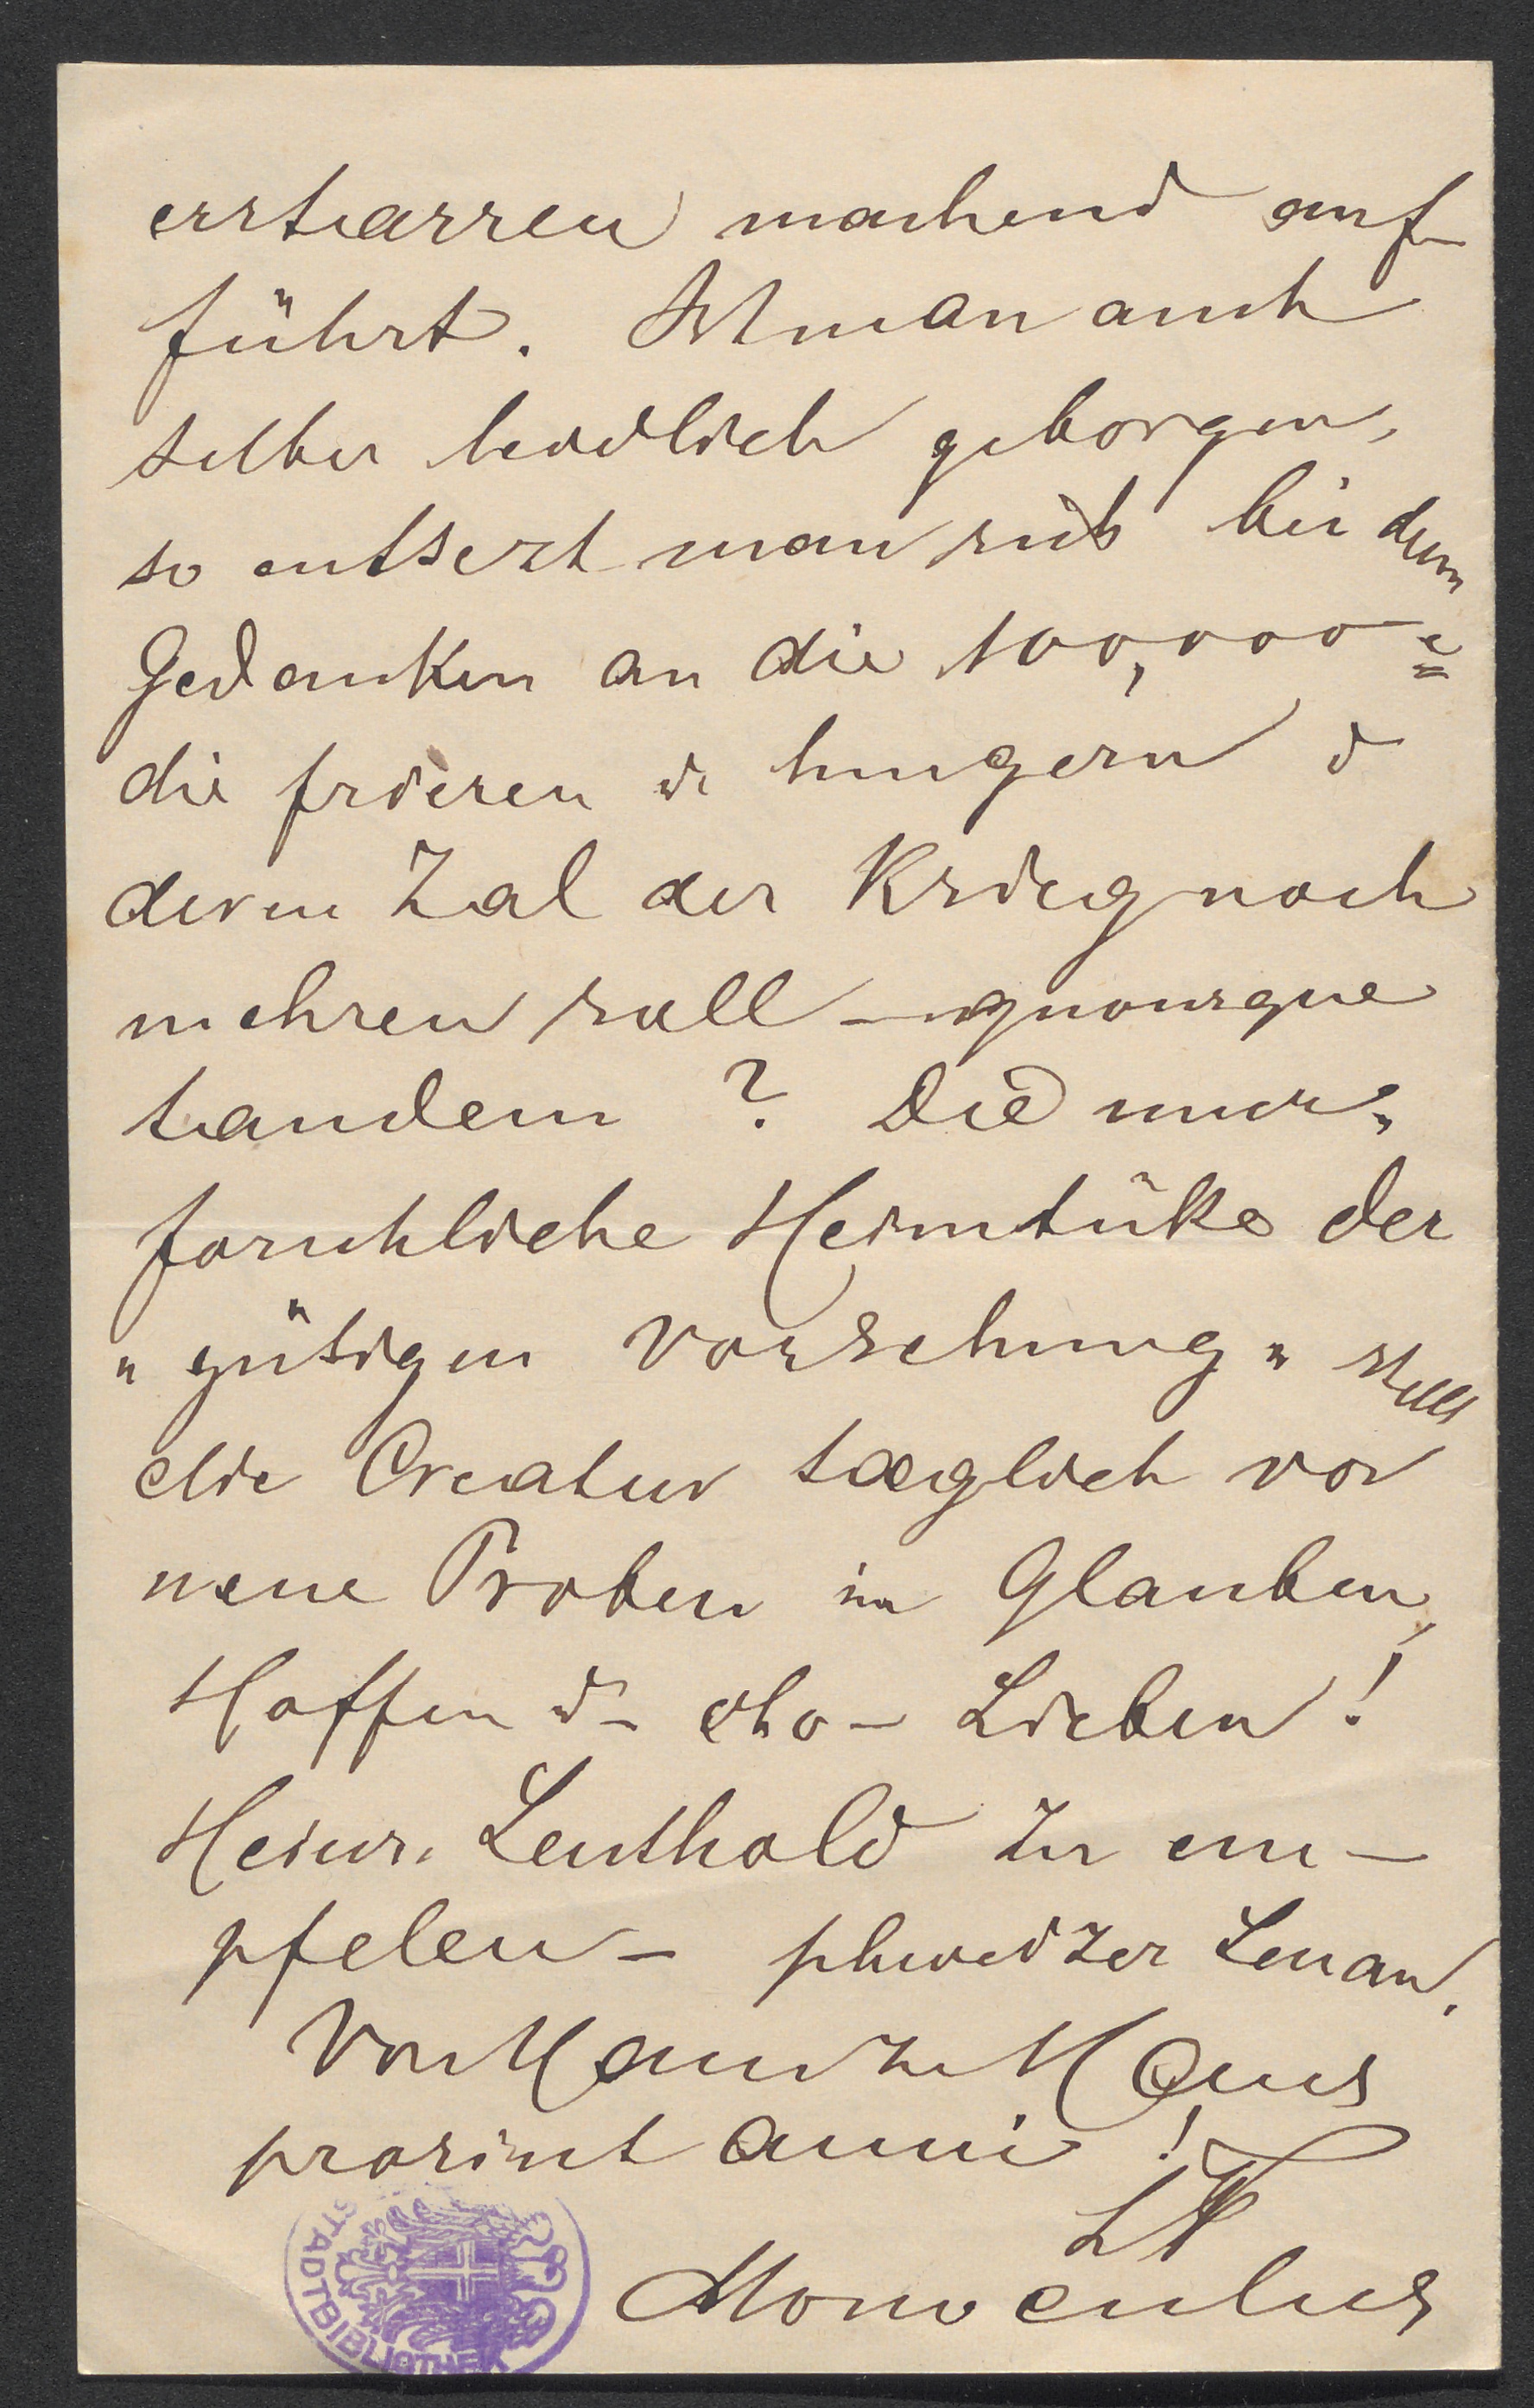 erstarren machend auf-
führt. Ist man auch
selber leidlich geborgen,
so entsezt man sich bei dem
Gedanken an die 100,000e
die frieren u hungern u
deren Zal der Krieg noch
mehren soll – quousque
tandem ? Die uner„
forschliche Heimtüke der
„gütigen Vorsehung„ stellt
die Creatur taeglich vor
neue Proben im Glauben,
Hoffen u – oho – Lieben !
Heinr. Leuthold zu em-
pfelen – schweizer Lenau.
Von Haus zu Haus
prosint anni !
LK
Monoculus
STADTBIBLIOTHEK